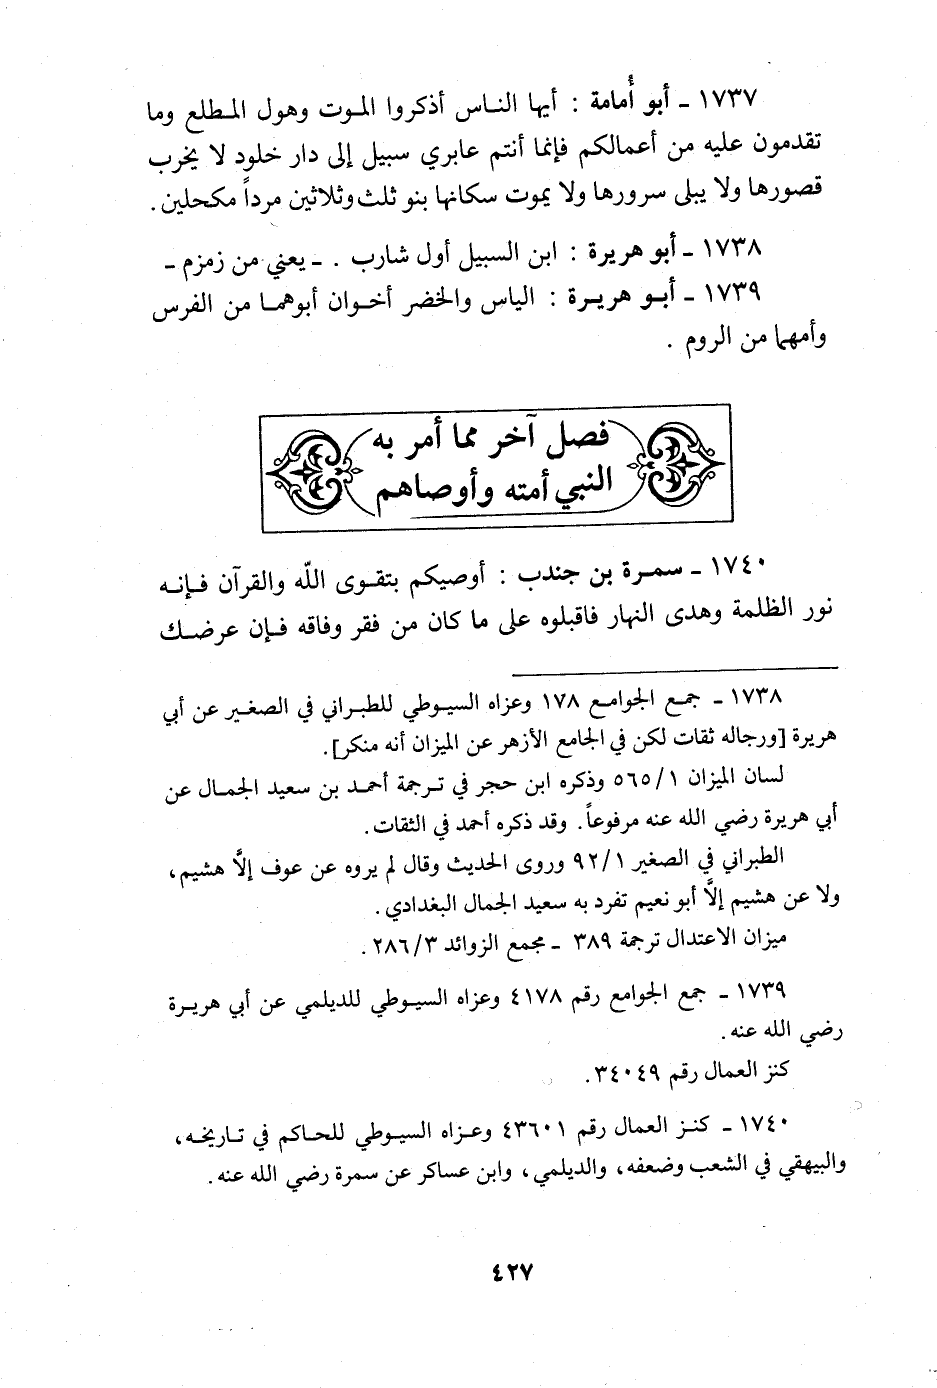 ١٧٣٧ ـ أبو أُمامة : أيها النـاس أذكروا المـوت وهول المـطلع وما
تقدمون عليه من أعمالكم فإنما أنتم عابري سبيل إلى دار خلود لا يخرب
قصورها ولا يبلى سرورها ولا يموت سكانها بنو ثلث وثلاثين مرداً مكحلين .
١٧٣٨ ـ أبو هريرة : ابن السبيل أول شارب . ـ يعني من زمزم ـ
١٧٣٩ ـ أبـو هريـرة : الياس والخضر أخـوان أبوهمـا من الفرس
وأمهما من الروم .
فصل آخر مما أمر به
النبي أمته وأوصاهم
١٧٤٠ ـ سمـرة بن جندب : أوصيكم بتقـوى اللّه والقرآن فـإنـه
نور الظلمة وهدى النهار فاقبلوه على ما كان من فقر وفاقه فـإن عرضـك
١٧٣٨ ـ جمـع الجوامـع ١٧٨ وعزاه السيـوطي للطبـراني في الصغـير عن أبي
هريرة [ورجاله ثقات لكن في الجامع الأزهر عن الميزان أنه منكر].
لسان الميزان ٥٦٥/١ وذكره ابن حجر في تـرجمة أحمـد بن سعيد الجمـال عن
أبي هريرة رضي الله عنه مرفوعاً. وقد ذكره أحمد في الثقات.
الطبراني في الصغير ٩٢/١ وروى الحديث وقال لم يروه عن عوف إلَّا هشيم،
ولا عن هشيم إلَّا أبو نعيم تفرد به سعيد الجمال البغدادي.
ميزان الاعتدال ترجمة ٣٨٩ ـ مجمع الزوائد ٢٨٦/٣.
١٧٣٩ ـ جمع الجوامع رقم ٤١٧٨ وعزاه السيـوطي للديلمي عن أبي هريـرة
رضي الله عنه.
كنز العمال رقم ٣٤٠٤٩.
١٧٤٠ ـ كنـز العمال رقم ٤٣٦٠١ وعـزاه السيـوطي للحـاكم في تـاريخـه،
والبيهقي في الشعب وضعفه، والديلمي، وابن عساكر عن سمرة رضي الله عنه.
٤٢٧